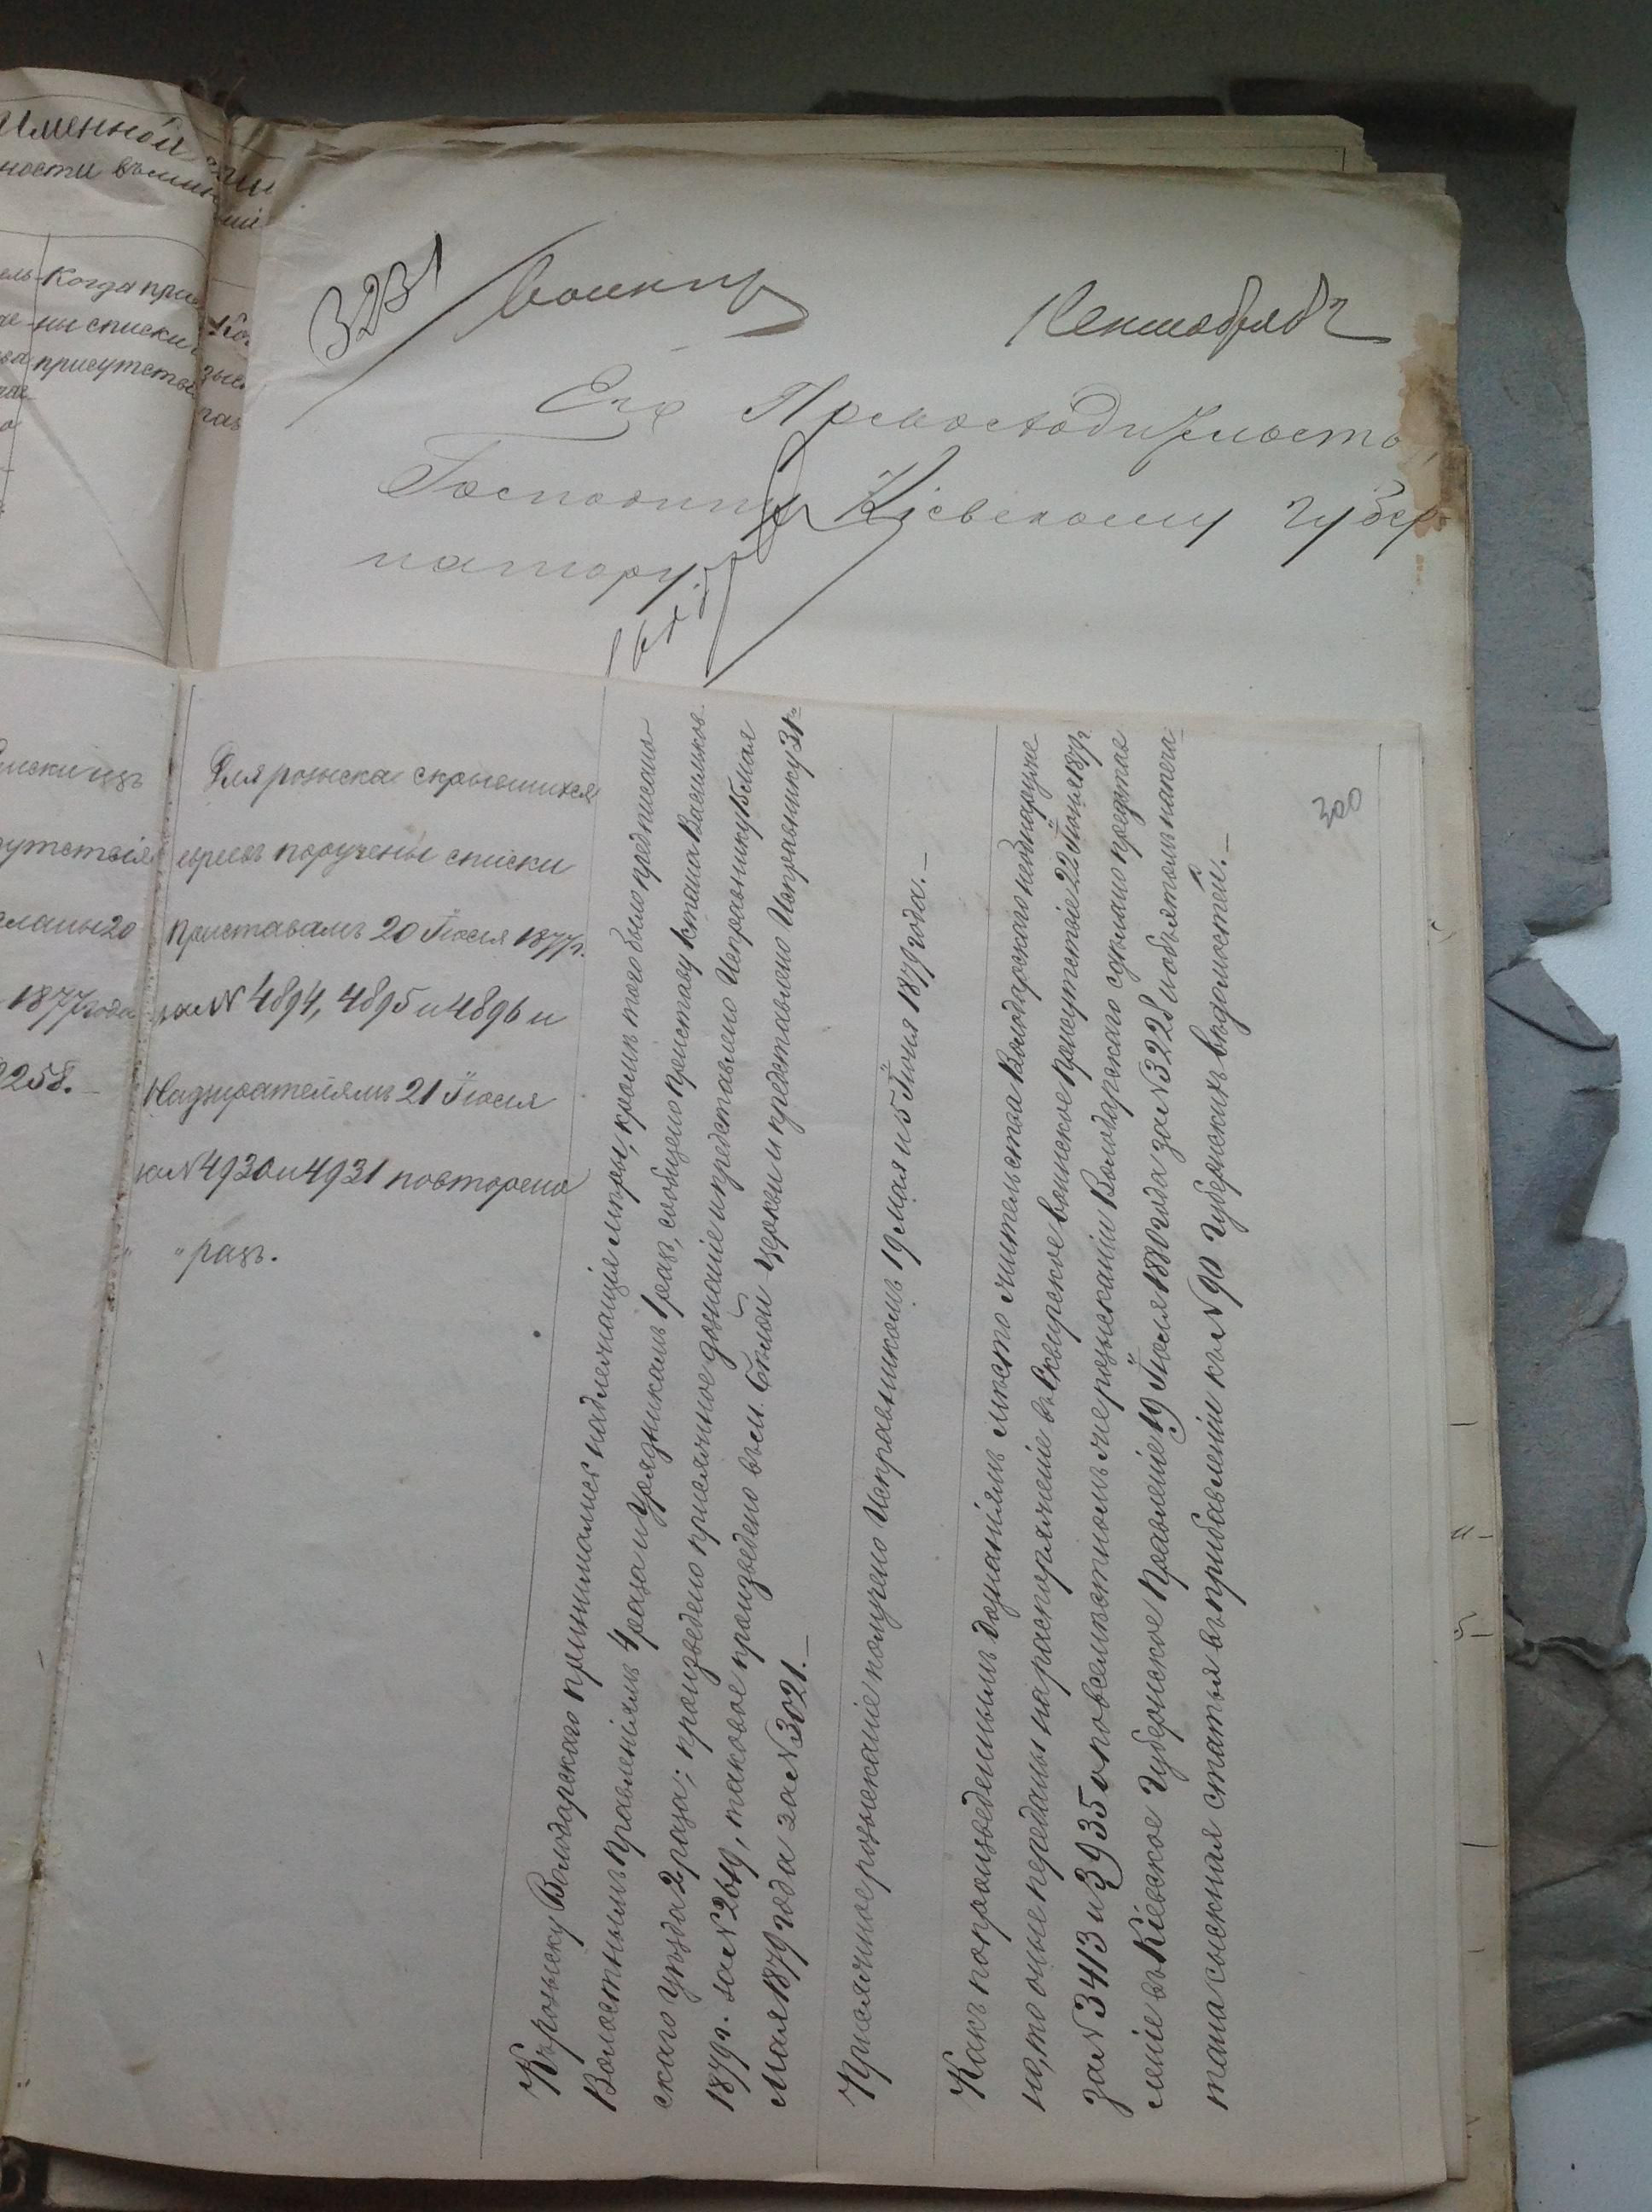 Именной
ности
Когда при
ны списки
присутстві
3231
воинск
Сентября 2
Его Превосходительству
Господину Кіевскому Губер
натору.
списки изъ
утствія
сланы 20
1877 года
2258.
Для розыска скрывшихся
евреевъ поручены списки
Приставамъ 20 Іюля 1877 г.
за № 4894, 4895 и 4896 и
Надзирателямъ 21 Іюля
за № 4930 и 4931 повторено
" " разъ.
Къ розыску Володарского принимались надлежащія мѣры, кромѣ того было предписано
Волостнымъ Правленіямъ 4 раза и Урядникамъ 1 разъ, сообщено Приставу 1 стана Васильков-
скаго уѣзда 2 раза; произведено присяжное дознаніе и представлено Исправнику 15 Мая
1879 г. за № 2649, таковое произведено въ м. Бѣлой-Церкви и представлено Исправнику 31го
Мая 1879 года за № 3021.—
Присяжные розысканіе получено Исправникомъ 19 Мая и 5 Іюня 1879 года.—
Какъ по произведеннымъ дознаніямъ мѣсто жительства Володарского необнаруже
но, то оные переданы на распоряженіе въ Сквирское воинское Присутствіе 22 Іюня 187 г.
за № 3413 и 3935 о повсемѣстномъ же розысканіи Володарского сдѣлано представ
леніе въ Кіевское Губернское Правленіе 19 Іюля 1880 года за № 3228 и объ этомъ напеча-
тана сыскная статья въ прибавленіи къ № 90 Губернскихъ вѣдомостей.—
300